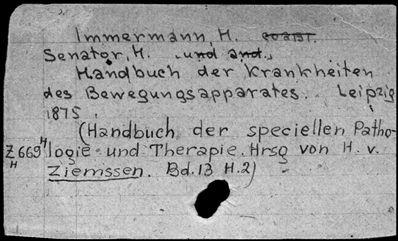 Immermann, H.
Senator, H. und and.,
Handbuch der Krankheiten
des Bewegungsapparates. Leipzig
1875.
(Handbuch der speciellen Patho-
Z 669 H logie und Therapie. Hrsg von H. v.
H Ziemssen. Bd. 13 H.2)